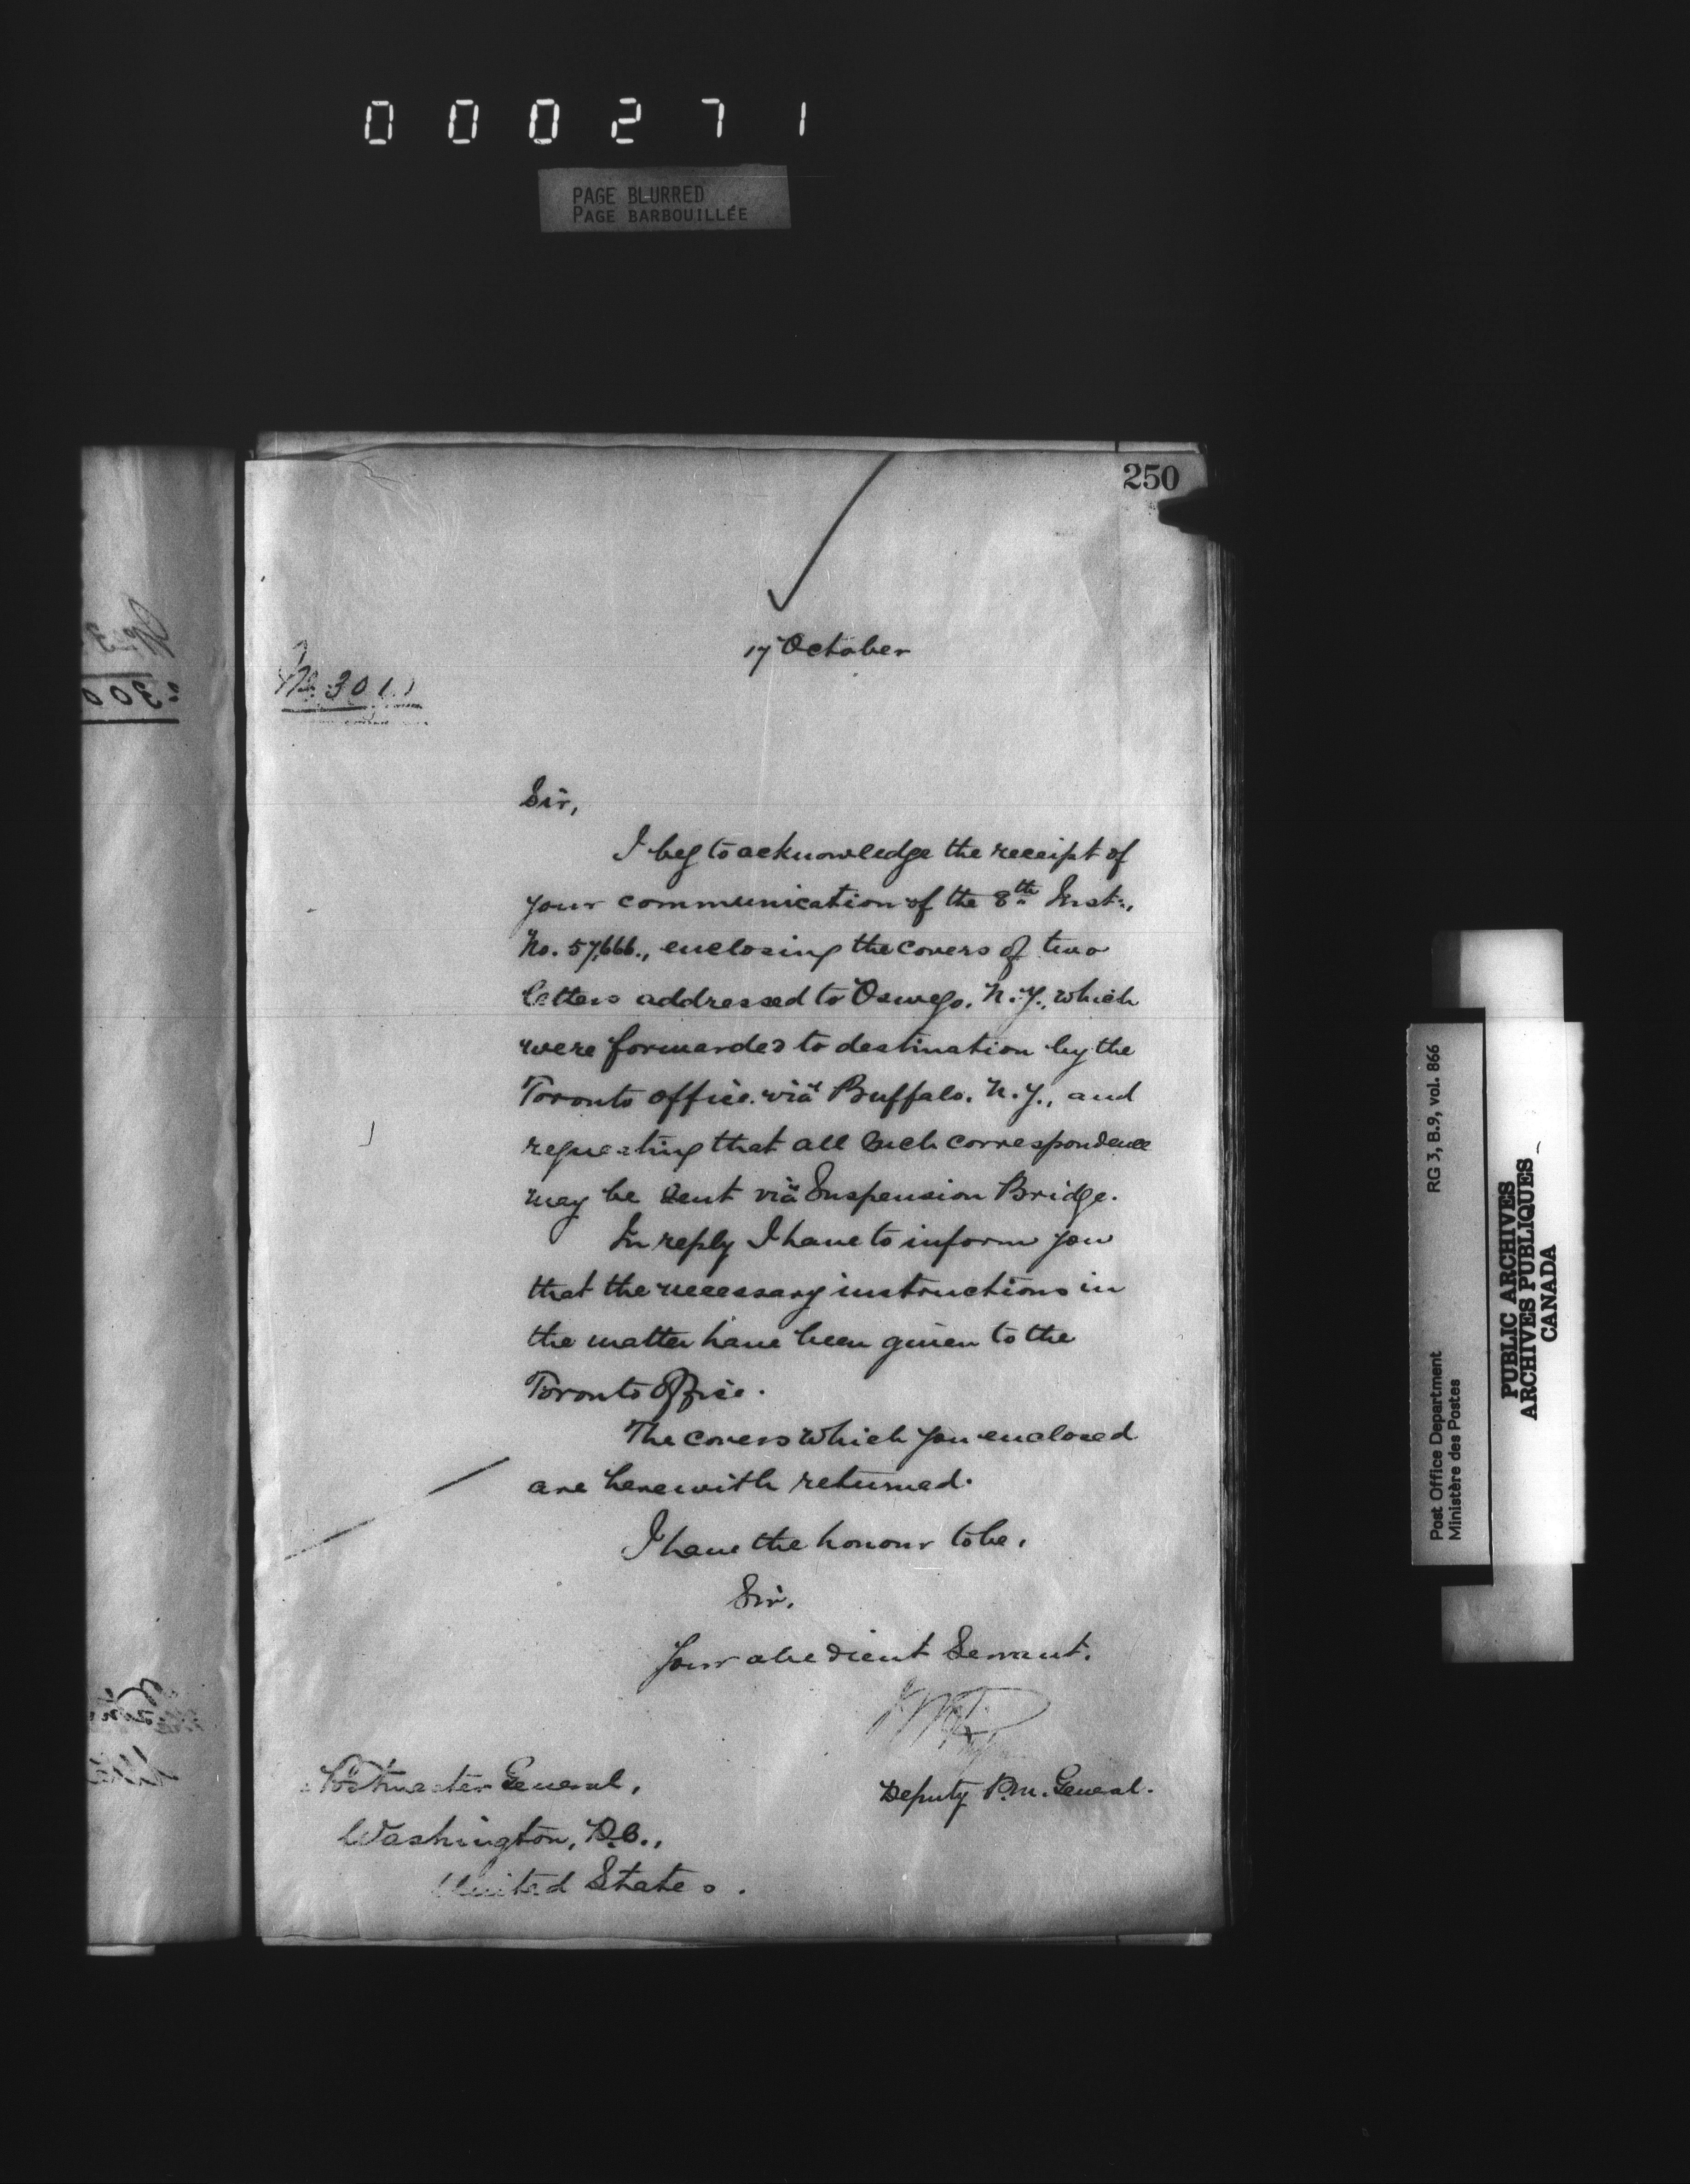 000271
PAGE BLURRED
PAGE BARBOUILLÉE
250
17 October
No. 301
Sir,
I beg to acknowledge the receipt of
your communication of the 8th Inst.,
No. 57,666., enclosing the covers of two
letters addressed to Oswego, N.Y., which
were forwarded to destination by the
Toronto office via Buffalo, N.Y., and
requesting that all such correspondence
may be sent via Suspension Bridge.
In reply I have to inform you
that the necessary instructions in
the matter have been given to the
Toronto Office.
The covers which you enclosed
are herewith returned.
I have the honour to be,
Sir,
Your obedient Servant.
Deputy P.M. General.
Postmaster General,
Washington, D.C.,
United States.
RG 3, B.9, vol. 866
Post Office Department
Ministère des Postes
PUBLIC ARCHIVES
ARCHIVES PUBLIQUES
CANADA